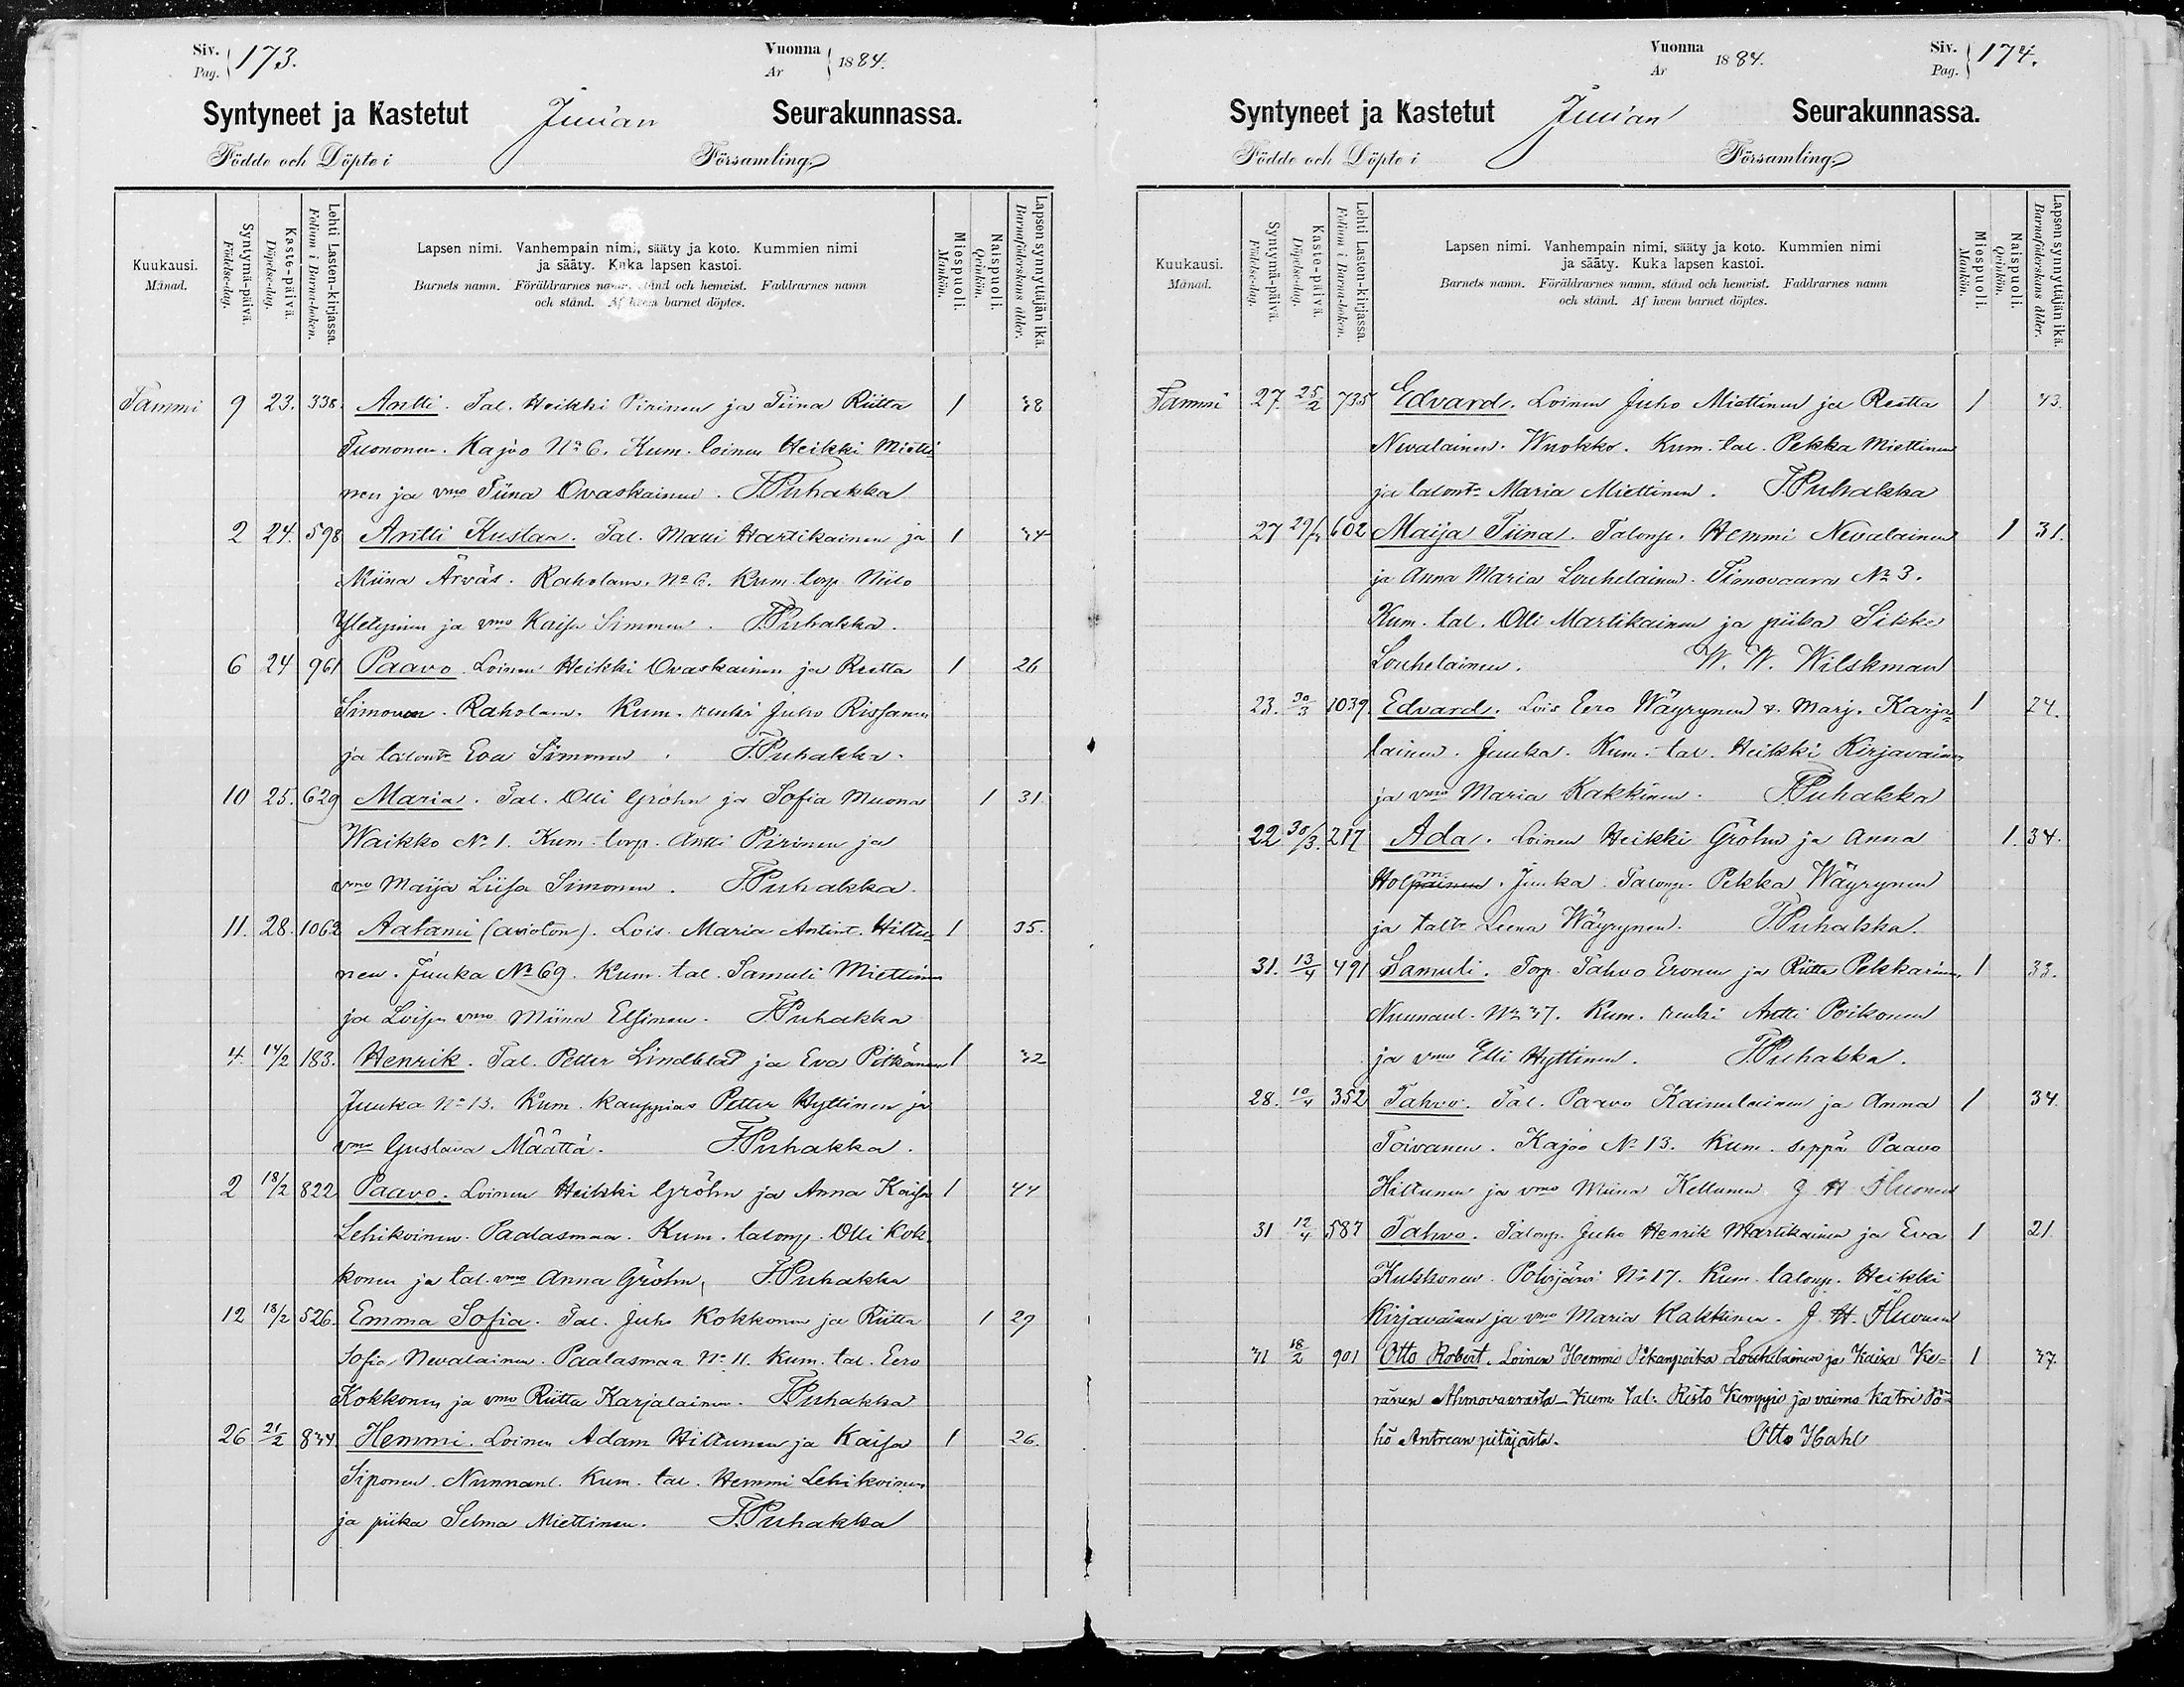 Siv. Pag. 173.
Vuonna År 1884.
Syntyneet ja Kastetut Juuan Seurakunnassa.
Födde och Döpte i Församling.
Kuukausi. Månad.
Syntymä-päivä. Födelse-dag.
Kaste-päivä. Döpelse-dag.
Lehti Lasten-kirjassa. Folium i Barna-boken.
Lapsen nimi. Vanhempain nimi, sääty ja koto. Kummien nimi
ja sääty. Kuka lapsen kastoi.
Barnets namn. Föräldrarnes namn, stånd och hemvist. Faddrarnes namn
och stånd. Af hvem barnet döptes.
Miespuoli. Mankön.
Naispuoli. Qvinkön.
Lapsen synnyttäjän ikä. Barnaföderskans ålder.
Tammi 9 23. 338. Antti. Tal. Heikki Pirinen ja Tiina Riitta 1 38
Tuononen. Kajoo No 6. Kum. loinen Heikki Mietti-
nen ja vmo Tiina Ovaskainen. F. Puhakka
2 24. 598 Antti Kustaa. Tal. Matti Hartikainen ja 1 34
Miina Ärväs. Raholan. No 6. Kum. torp. Niilo
Yletyinen ja vmo Kaisa Simonen. F. Puhakka.
6 24 961 Paavo. Loinen Heikki Ovaskainen ja Riitta 1 26
Simonen. Raholan. Kum. renki Juho Rissanen
ja talont. Eva Simonen. F. Puhakka.
10 25. 629 Maria. Tal. Olli Gröhn ja Sofia Muona 1 31
Waikko No 1. Kum. torp. Antti Pirinen ja
vmo Maija Liisa Simonen. F. Puhakka.
11. 28. 1062 Aatami (avioton). Lois. Maria Antint. Hiltu- 1 35.
nen. Juuka No 69. Kum. tal. Samuli Miettinen
ja Loisen vmo Miina Elsinen. F. Puhakka
4. 14/2 183. Henrik. Tal. Petter Lindblad ja Eva Pitkänen 1 32
Juuka No 13. Kum. kauppias Petter Hyttinen ja
vmo Gustava Määttä. F. Puhakka.
2 18/2 822 Paavo. Loinen Heikki Gröhn ja Anna Kaisa 1 44
Lehikoinen. Paalasmaa. Kum. talonp. Olli Kok-
konen ja tal. vmo Anna Gröhn. F. Puhakka
12 18/2 526. Emma Sofia. Tal. Juho Kokkonen ja Riitta 1 29
Sofia Nevalainen. Paalasmaa No 11. Kum. tal. Eero
Kokkonen ja vmo Riitta Karjalainen. F. Puhakka
26 21/2 834 Hemmi. Loinen Adam Hiltunen ja Kaisa 1 26.
Siponen. Nunnanl. Kum. tal. Hemmi Lehikoinen
ja piika Selma Miettinen. F. Puhakka
Vuonna År 1884.
Siv. Pag. 174.
Syntyneet ja Kastetut Juuan Seurakunnassa.
Födde och Döpte i Församling.
Kuukausi. Månad.
Syntymä-päivä. Födelse-dag.
Kaste-päivä. Döpelse-dag.
Lehti Lasten-kirjassa. Folium i Barna-boken.
Lapsen nimi. Vanhempain nimi, sääty ja koto. Kummien nimi
ja sääty. Kuka lapsen kastoi.
Barnets namn. Föräldrarnes namn, stånd och hemvist. Faddrarnes namn
och stånd. Af hvem barnet döptes.
Miespuoli. Mankön.
Naispuoli. Qvinkön.
Lapsen synnyttäjän ikä. Barnaföderskans ålder.
Tammi 27. 25/2 735 Edvard. Loinen Juho Miettinen ja Reitta 1 43.
Nevalainen. Wuokko. Kum. tal. Pekka Miettinen
ja talont. Maria Miettinen. F. Puhakka
27 602 Maija Tiina. Talonp. Hemmi Nevalainen 1 31.
ja Anna Maria Louhelainen. Timovaara No 3.
Kum. tal. Olli Martikainen ja piika Sikke
Louhelainen. W. W. Wilskman
23. 30/3 1039. Edvard. Lois Eero Wäyrynen v. Marj. Karja- 1 24.
lainen. Juuka. Kum. tal. Heikki Kirjavainen
ja vmo Maria Kakkinen. F. Puhakka
22 30/3. 217 Ada. Loinen Heikki Gröhn ja Anna 1. 34.
Holpainen. Juuka. Talonp. Pekka Wäyrynen
ja talt. Leena Wäyrynen. F. Puhakka.
31. 13/4 491 Samuli. Torp. Tahvo Eronen ja Riitta Pekkarinen. 1 33.
Nunnanl. No 37. Kum. renki Antti Poikonen
ja vmo Elli Hyttinen. F. Puhakka.
28. 10/4 352 Tahvo. Tal. Paavo Kainulainen ja Anna 1 34
Toivanen. Kajoo No 13. Kum. seppä Paavo
Hiltunen ja vmo Miina Kettunen J. H.
31 12/4 587 Tahvo. Talonp. Juho Henrik Martikainen ja Eva 1 21
Kukkonen. Polvijärvi No 17. Kum. talonp. Heikki
Kirjavainen ja vmo Maria Kakkinen. J. H.
31 18/2 901 Otto Robert. Loinen Hemmi Pikanpoika Louhelainen ja Kaisa Ke- 1 37.
ränen Ahmovaarasta. Kum. tal. Risto Kemppi ja vaimo Katri Pö-
hö Antrean pitäjästä. Otto Hahl